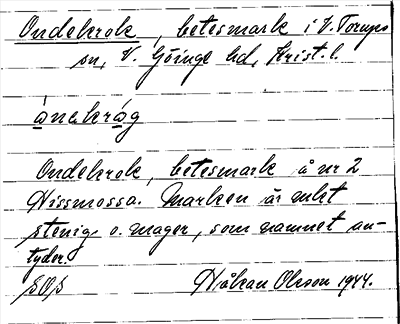 Ondekrok, betesmark i V. Torups
sn, V. Göinge hd, Krist. l.
ònakrǻg
Ondekrok, betesmark å nr 2
Nissmossa. Marken är mkt
stenig o. mager, som namnet an-
tyder.
Håkan Olsson 1944.